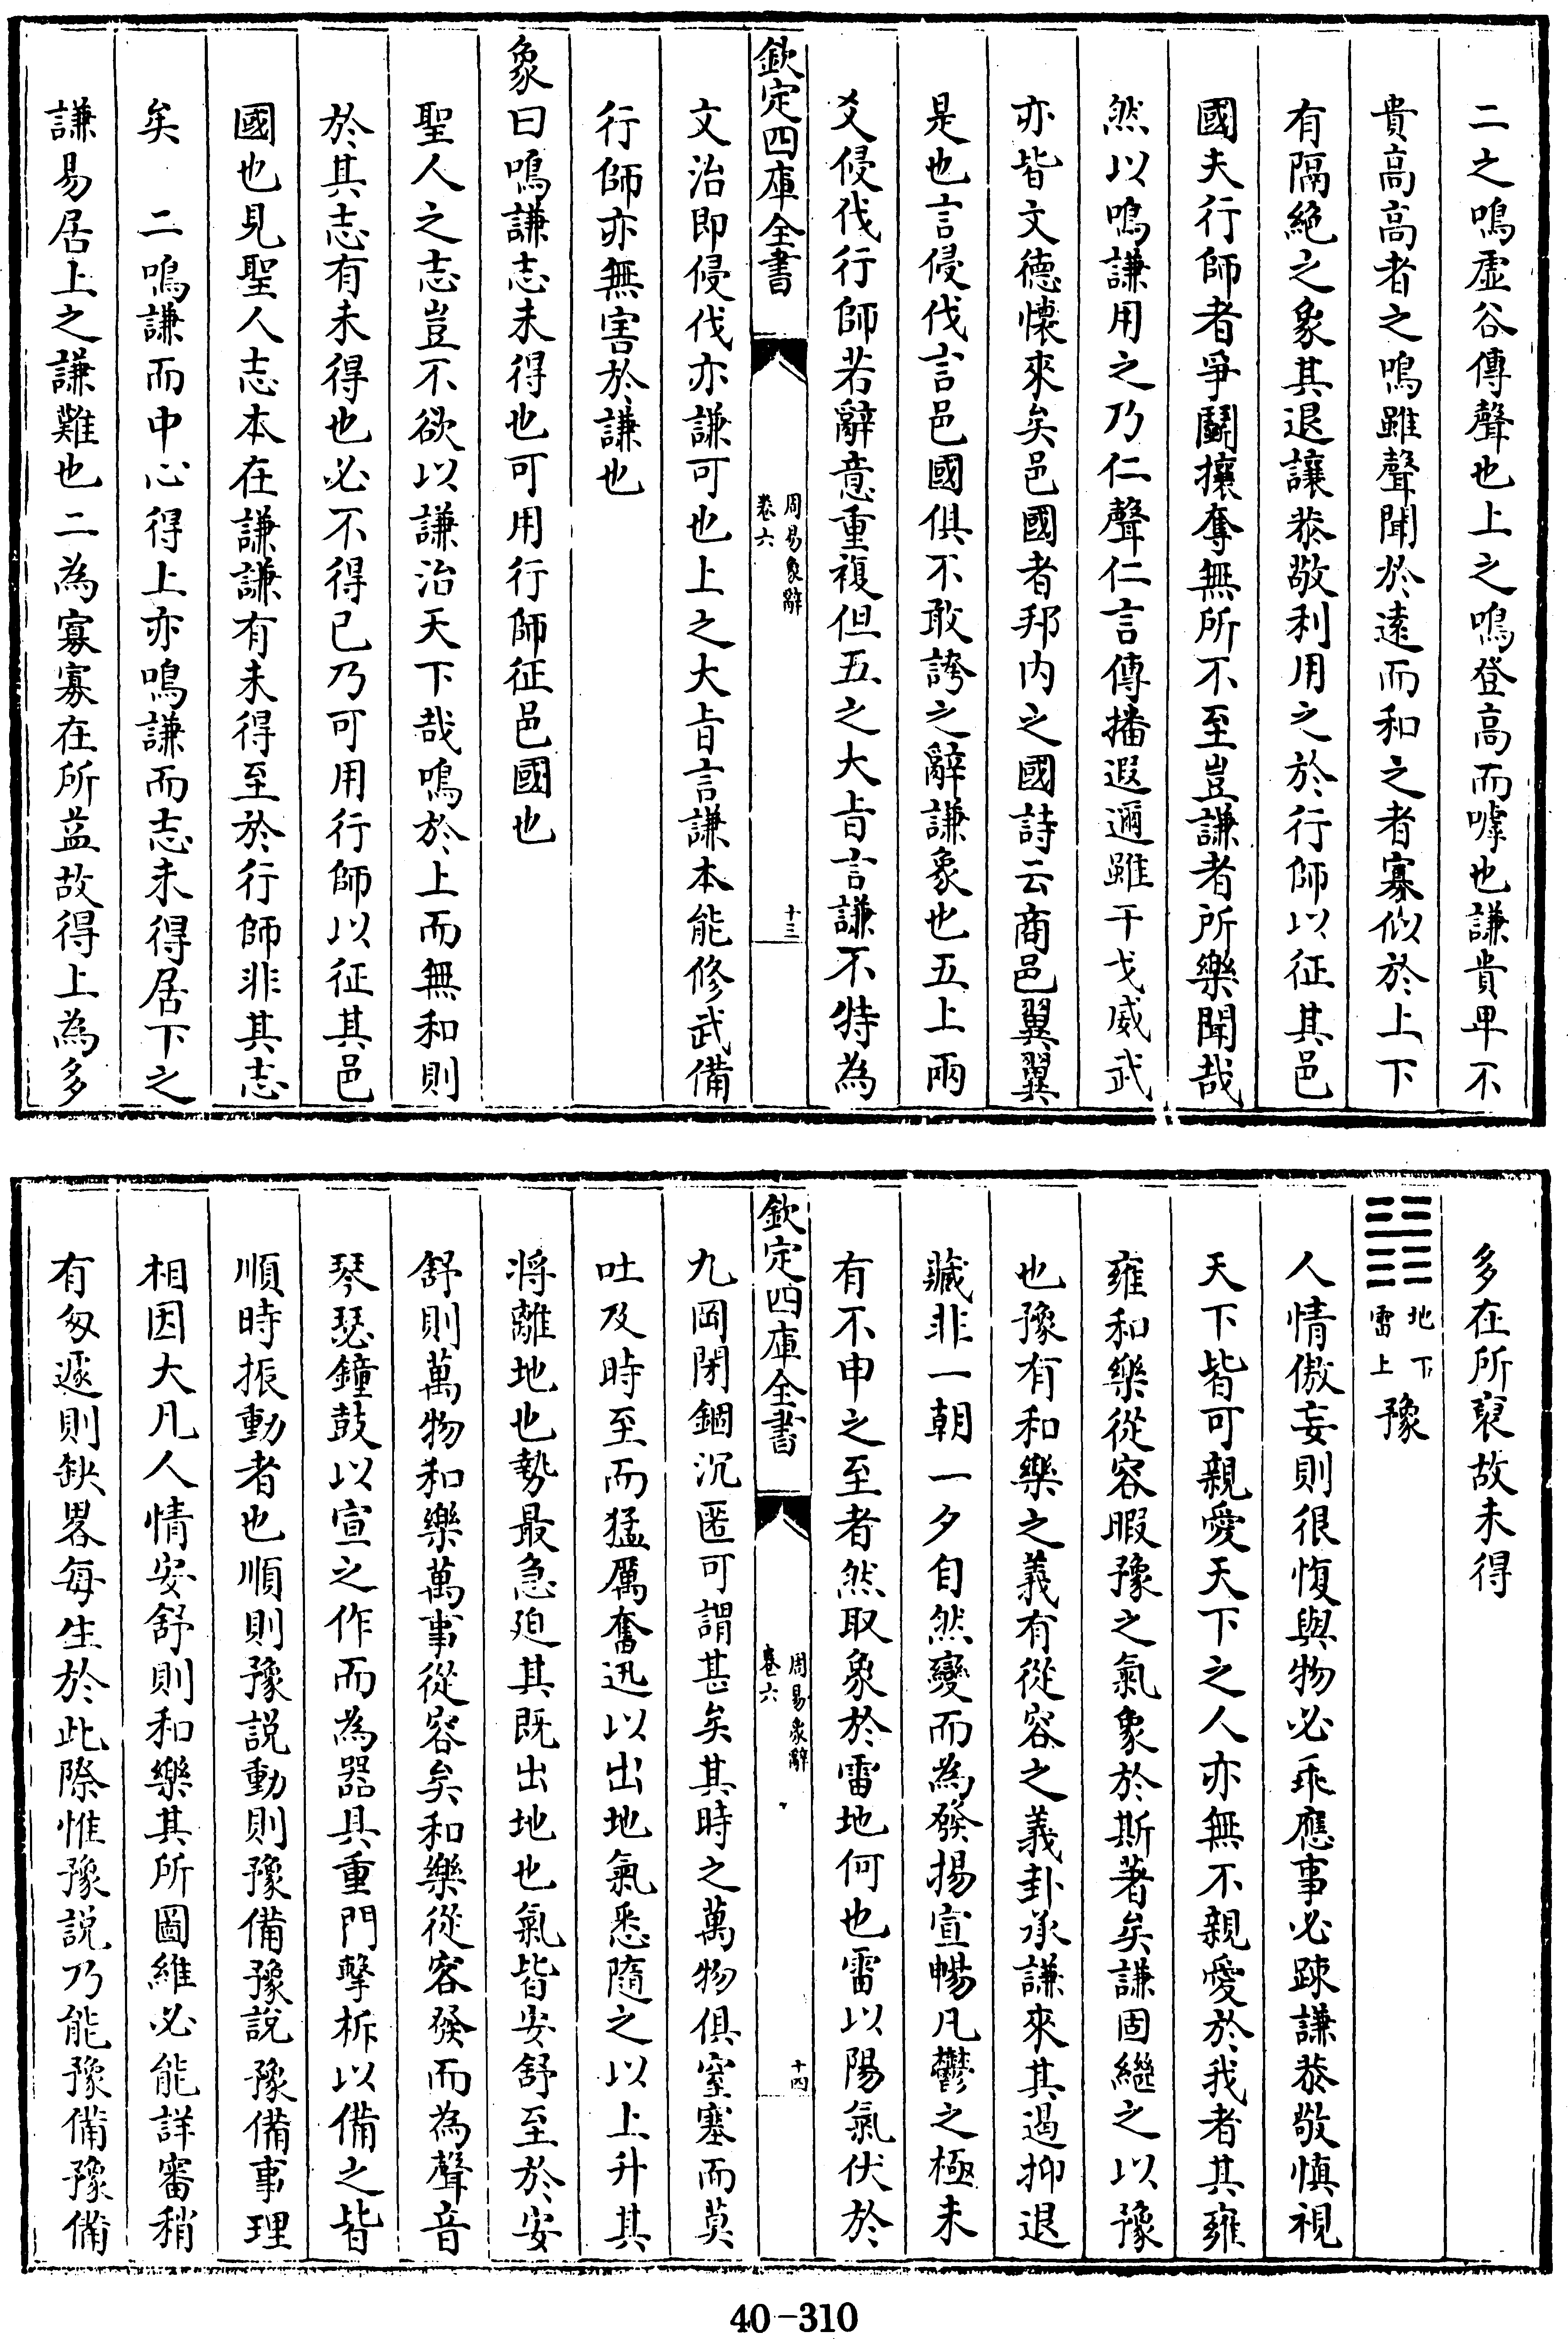 二之鳴虛谷傳聲也上之鳴登高而嘑也謙貴卑不
貴高高者之鳴雖聲聞於遠而和之者寡似於上下
有隔絶之象其退讓恭敬利用之於行師以征其邑
國夫行師者爭鬭攘奪無所不至豈謙者所樂聞哉
然以鳴謙用之乃仁聲仁言傳播遐邇雖干戈威武
亦皆文德懷來矣邑國者邦内之國詩云商邑翼翼
是也言侵伐言邑國俱不敢誇之辭謙象也五上兩
爻侵伐行師若辭意重複但五之大旨言謙不特為
欽定四庫全書
周易象辭
卷六
十三
文治即侵伐亦謙可也上之大旨言謙本能修武備
行師亦無害於謙也
象曰鳴謙志未得也可用行師征邑國也
聖人之志豈不欲以謙治天下哉鳴於上而無和則
於其志有未得也必不得已乃可用行師以征其邑
國也見聖人志本在謙謙有未得至於行師非其志
矣　二鳴謙而中心得上亦鳴謙而志未得居下之
謙易居上之謙難也二為寡寡在所益故得上為多
多在所裒故未得
䷏
地下
雷上
豫
人情傲妄則很愎與物必乖應事必疎謙恭敬慎視
天下皆可親愛天下之人亦無不親愛於我者其雍
雍和樂從容暇豫之氣象於斯著矣謙固繼之以豫
也豫有和樂之義有從容之義卦承謙來其遏抑退
藏非一朝一夕自然變而為發揚宣暢凡鬱之極未
有不申之至者然取象於雷地何也雷以陽氣伏於
欽定四庫全書
周易象辭
卷六
十四
九岡閉錮沉匿可謂甚矣其時之萬物俱窒塞而莫
吐及時至而猛厲奮迅以出地氣悉隨之以上升其
将離地也勢最急廹其既出地也氣皆安舒至於安
舒則萬物和樂萬事從容矣和樂從容發而為聲音
琴瑟鐘鼓以宣之作而為器具重門擊柝以備之皆
順時振動者也順則豫說動則豫備豫說豫備事理
相因大凡人情安舒則和樂其所圖維必能詳審稍
有匆遽則缺畧每生於此際惟豫説乃能豫備豫備
40-310